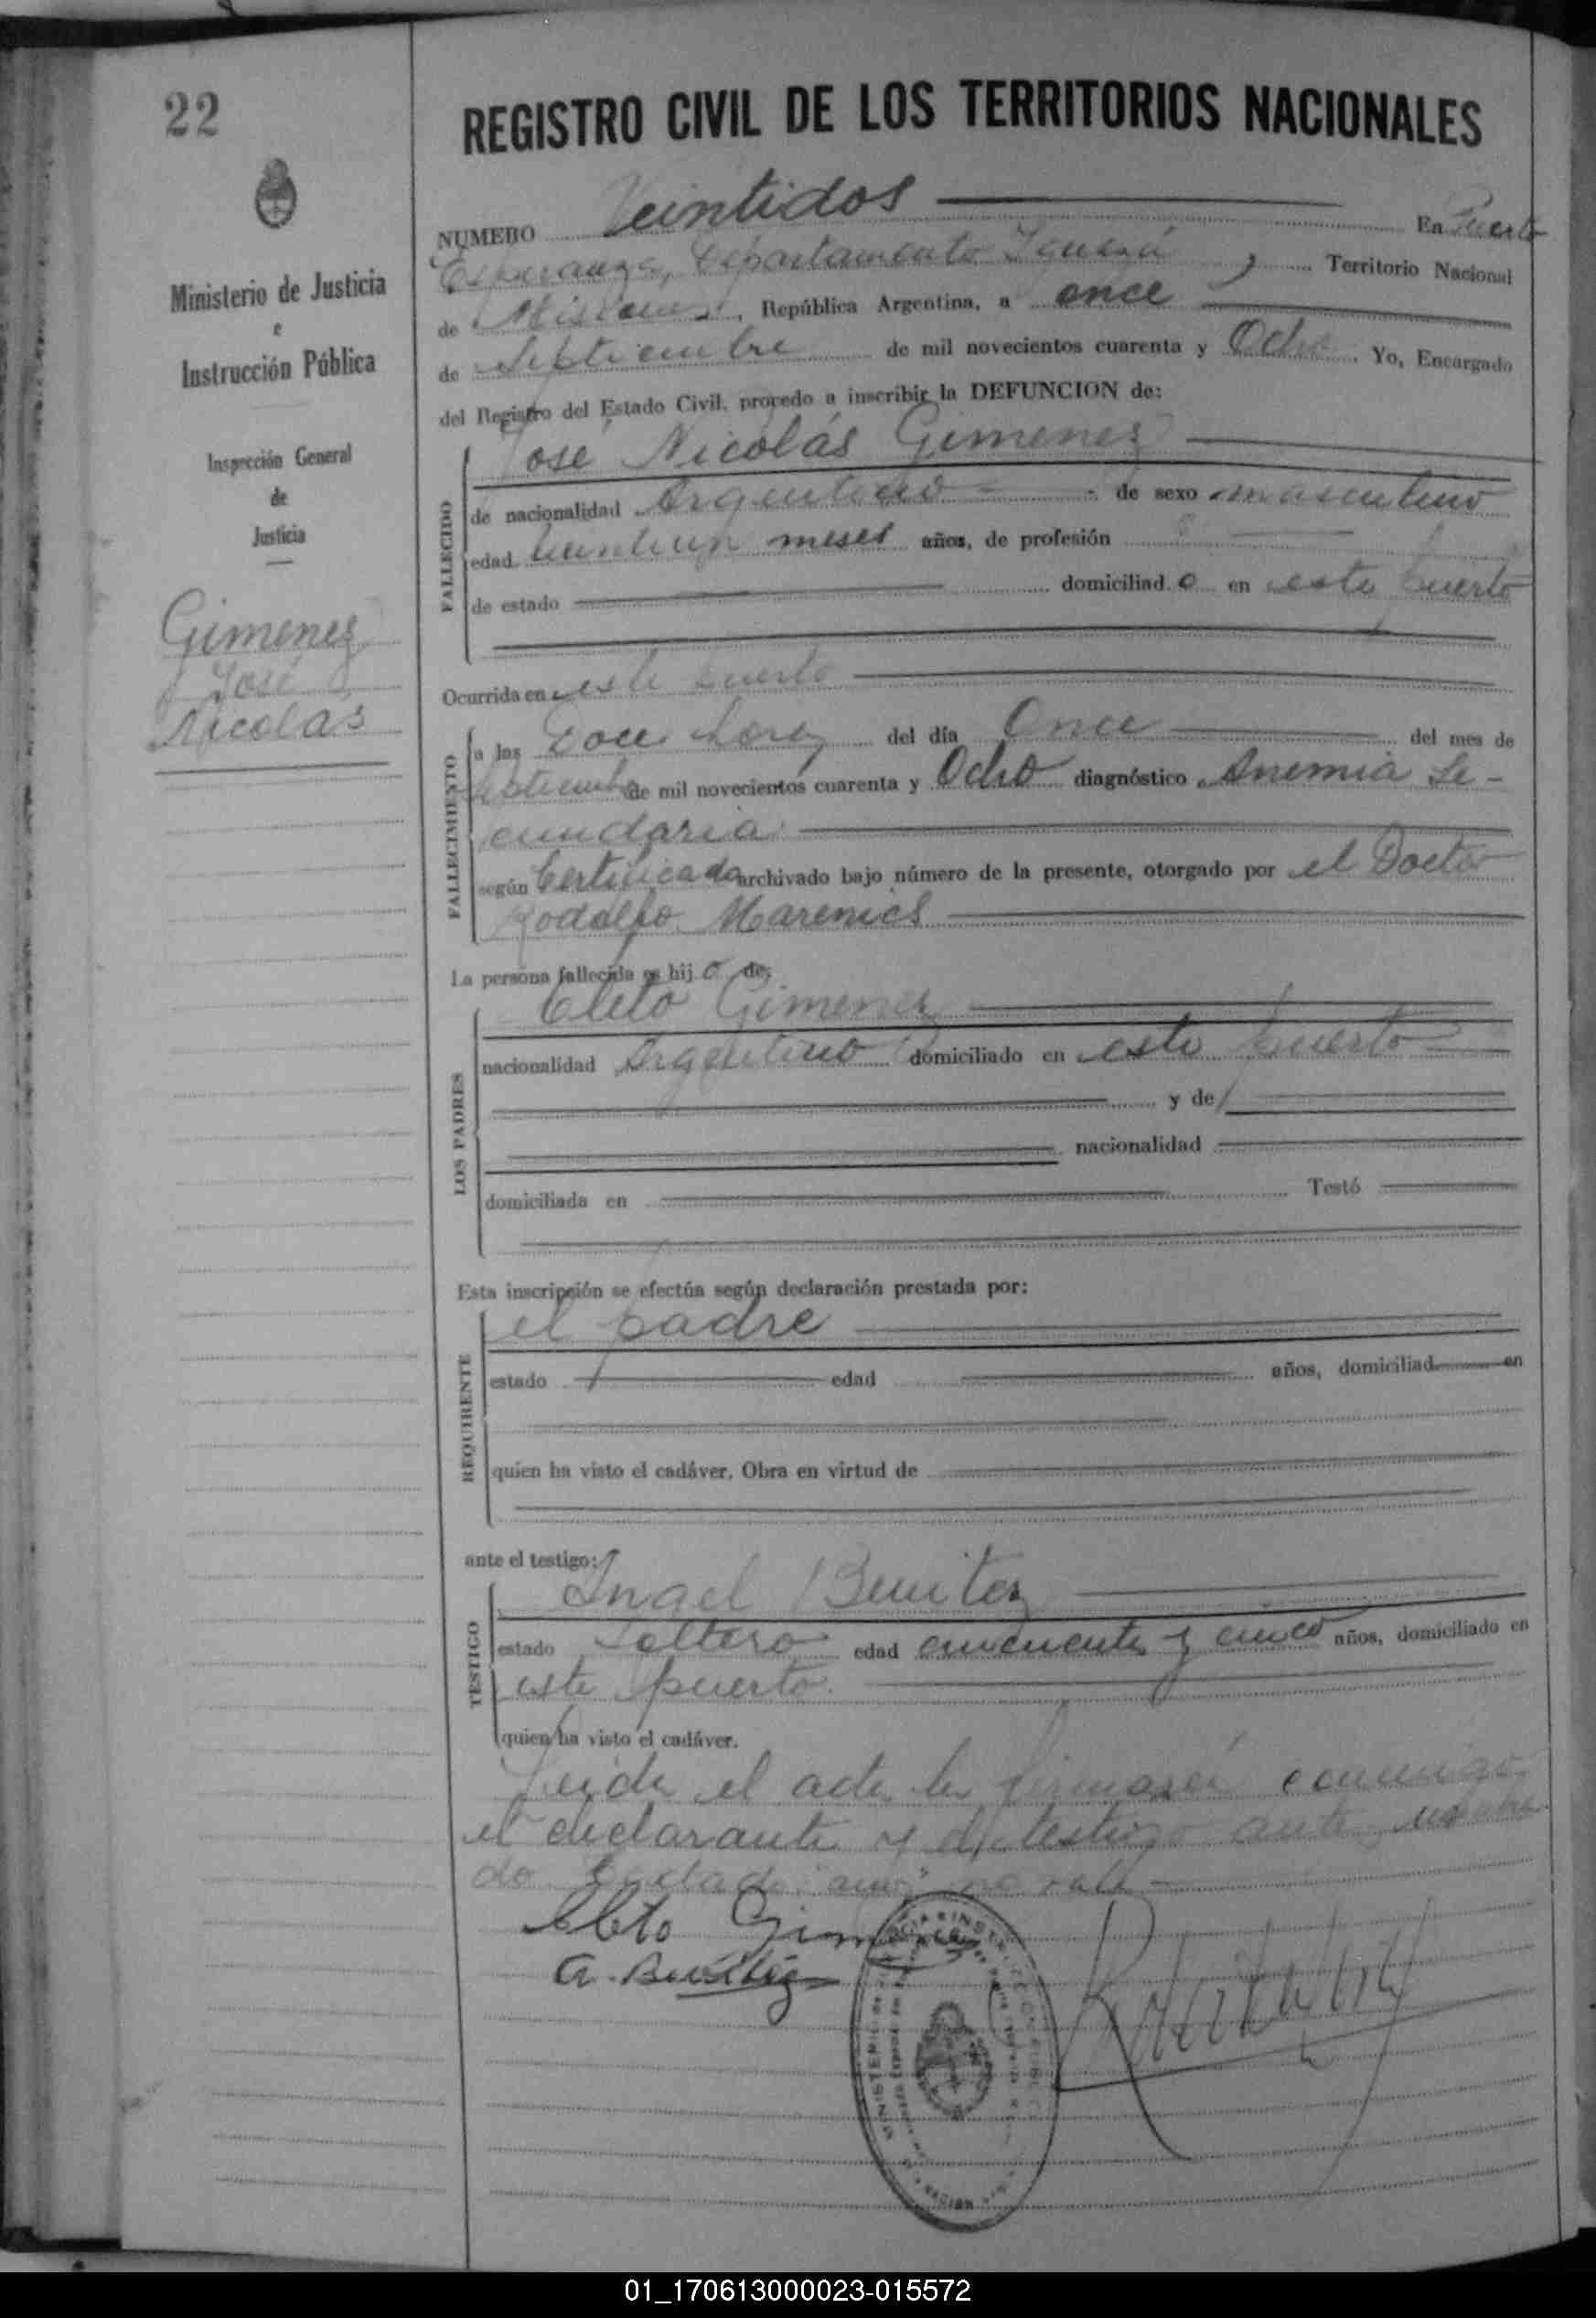 22
Ministerio de Justicia
e
Instrucción Pública
Inspección General
de
Justicia
Gimenez
José
Nicolás
REGISTRO CIVIL DE LOS TERRITORIOS NACIONALES
NUMERO Veintidos En Puerto
Esperanza, Departamento Iguazú, Territorio Nacional
de Misiones, República Argentina, a once
de Septiembre de mil novecientos cuarenta y Ocho. Yo, Encargado
del Registro del Estado Civil, procedo a inscribir la DEFUNCION de:
José Nicolás Gimenez
FALLECIDO
de nacionalidad Argentino de sexo masculino
edad meses años, de profesión
de estado domiciliado en este puerto
Ocurrida en este puerto
FALLECIMIENTO
a las Doce horas del día Once del mes de
Septiembre de mil novecientos cuarenta y Ocho diagnóstico Anemia Se-
cundaria
según Certificado archivado bajo número de la presente, otorgado por el Doctor
Rodolfo Marenics
La persona fallecida es hijo de:
Cleto Gimenez
LOS PADRES
nacionalidad Argentino domiciliado en este puerto
y de
nacionalidad
domiciliada en Testó
Esta inscripción se efectúa según declaración prestada por:
el padre
REQUIRENTE
estado edad años, domiciliad en
quien ha visto el cadáver. Obra en virtud de
ante el testigo:
Angel Benitez
TESTIGO
estado Soltero edad cincuenta y cinco años, domiciliado en
este puerto.
quien ha visto el cadáver.
Leida el acta la conmigo
el declarante y el testigo
no vale
Cleto
A. Benitez
01_170613000023-015572